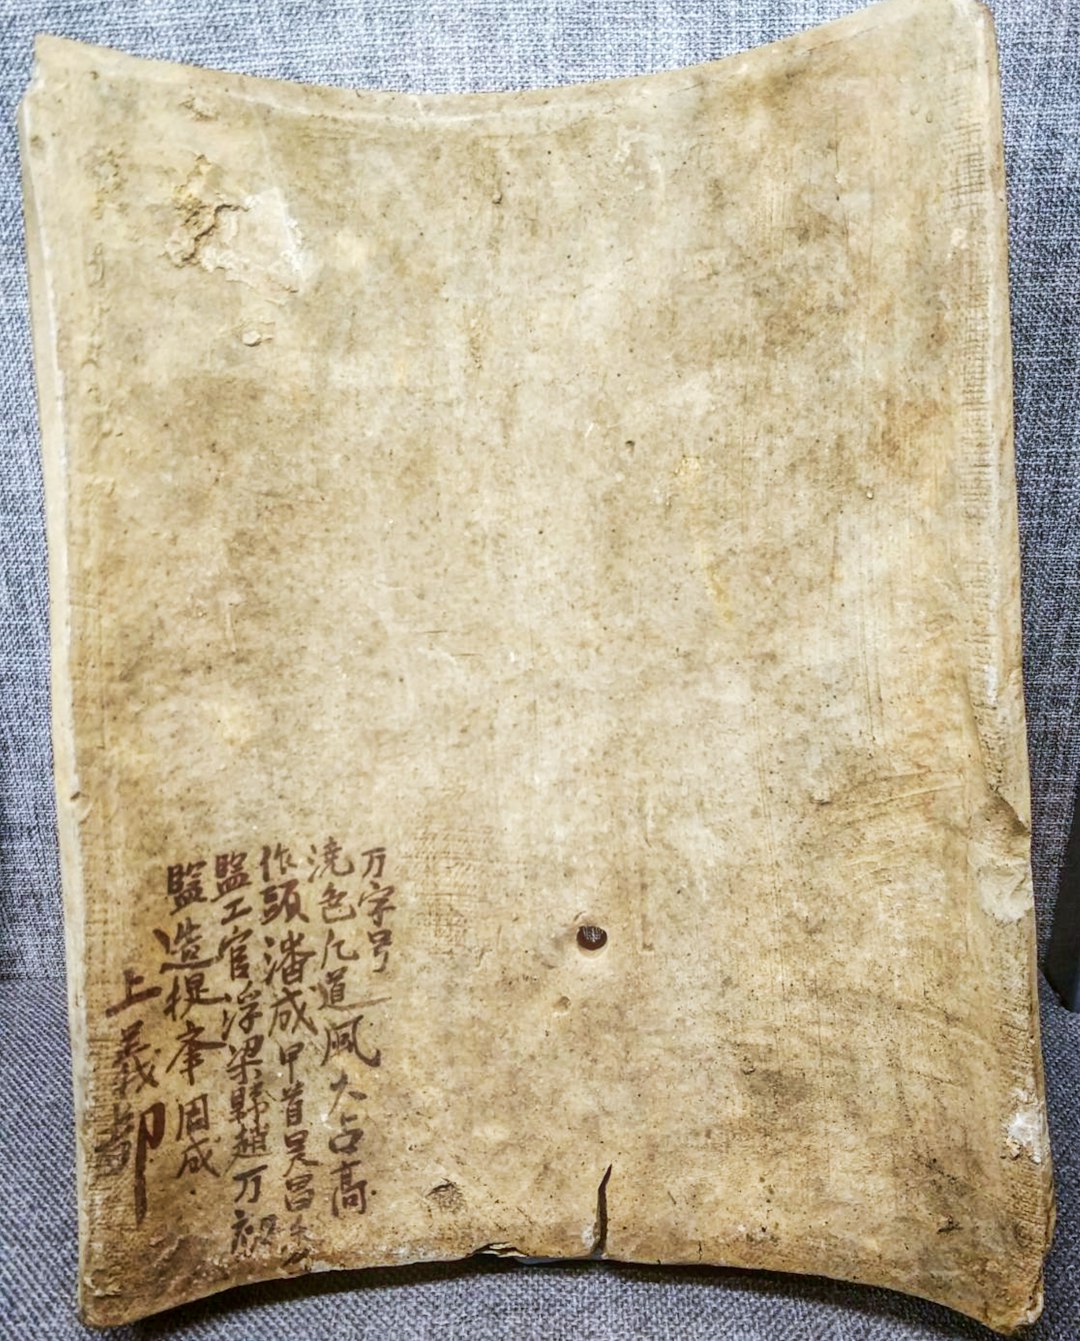 万字号
澆色匠道風 人占高
作頭潘成甲首吴昌
監工官浮梁縣趙万初
監造提舉周成
上 吴義卯